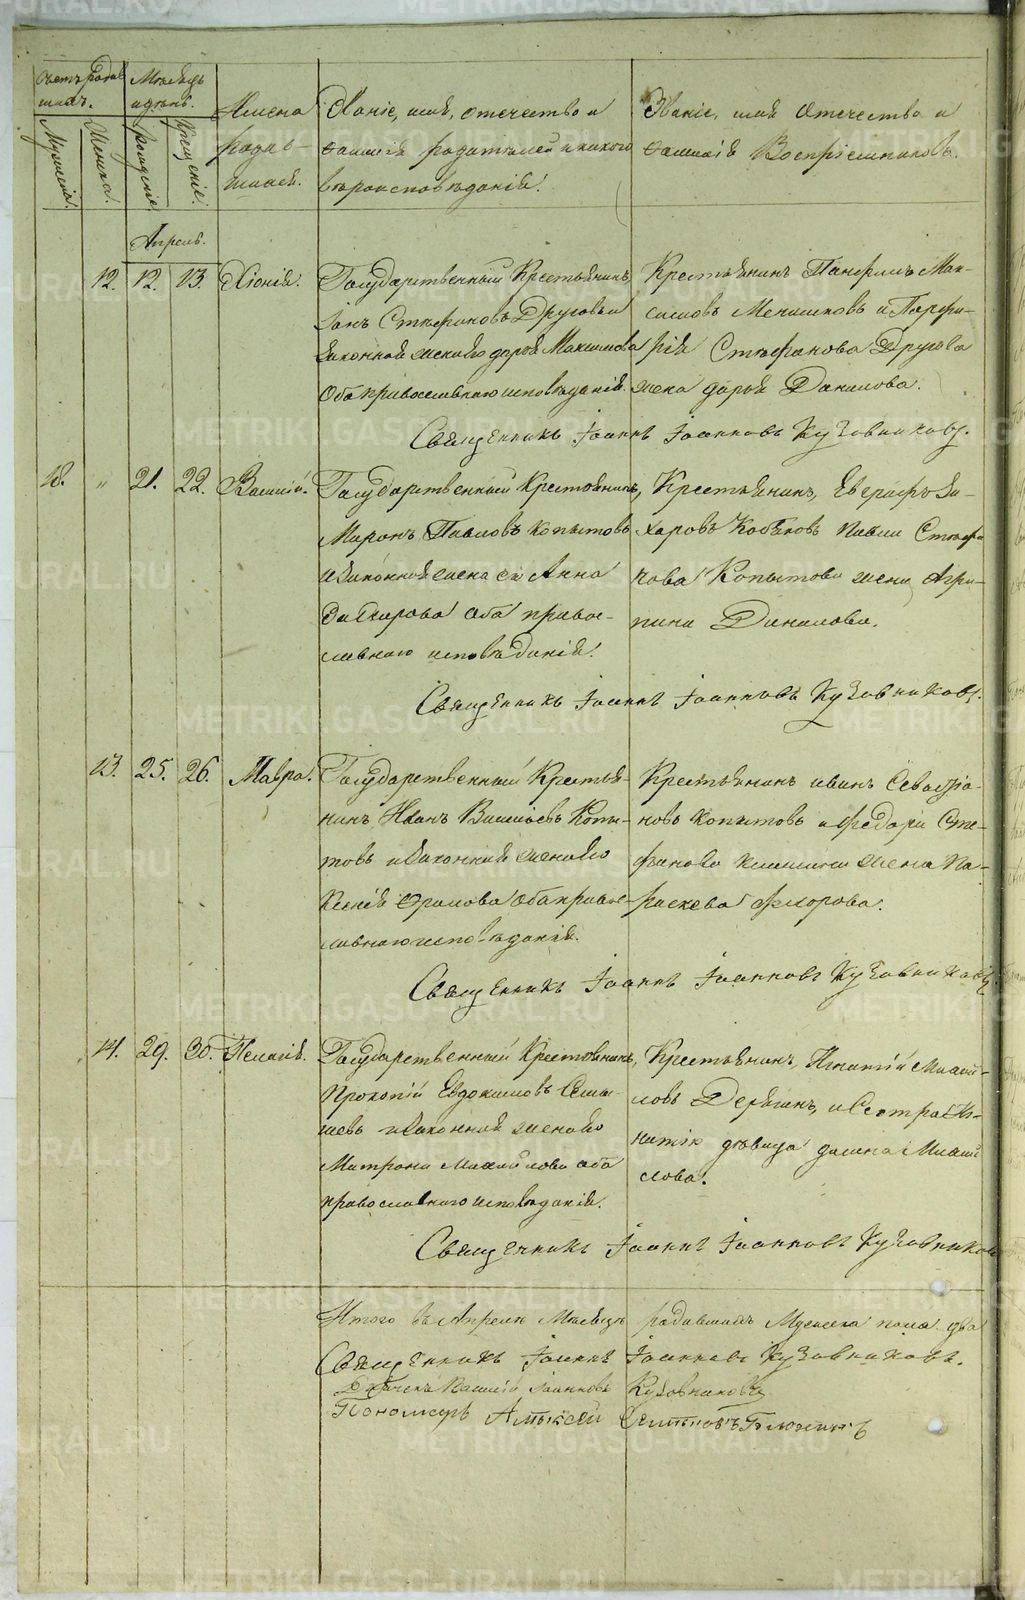 Счетъ родив
шихъ.
Мѣсяцъ
и день.
Имена
родив-
шихся.
Званіе, имя, отечество и
фамилія родителей и какого
вѣроисповѣданія.
Званіе, имя отечество и
фамилія Воспріемниковъ.
Мужеска.
Женска.
Рожденіе
Крещеніе.
Апрель.
12. 12. 13. Хіонія.
Государственный Крестьянинъ
Стефановъ Друговъ и
законная жена его Дарья Максимова
оба православнаго исповѣданія.
Крестьянинъ Панфилъ Мак-
симовъ Меншиковъ и Порфи-
рія Стефанова Другова
жена Дарья Данилова.
Священникъ Іоаннъ Іоанновъ Кузовниковъ.
18. " 21. 22. Василій.
Государственный Крестьянинъ,
Миронъ Павловъ Копытовъ
и законная жена его Анна
Захарова оба право-
славнаго исповѣданія.
Крестьянинъ, Евграфъ За-
харовъ Кобяковъ Стефа
нова Копытова жена Агри-
пина Данилова.
Священникъ Іоаннъ Іоанновъ Кузовниковъ.
13. 25. 26. Мавра.
Государственный Крестья-
нинъ Иванъ Васильевъ Копы-
товъ и законная жена его
Ксенія оба право-
славнаго исповѣданія.
Крестьянинъ Иванъ Севастіа-
новъ Копытовъ и Федора Сте-
фанова жена Па-
раскева Флорова.
Священникъ Іоаннъ Іоанновъ Кузовниковъ
14. 29. 30. Пелагія.
Государственный Крестьянинъ,
Прокопій Евдокимовъ
и законная жена его
Матрона Михайлова оба
православнаго исповѣданія.
Крестьянинъ, Игнатій Михай-
ловъ Дерягинъ, и Сестра Иг-
натія дѣвица Михай
лова.
Священникъ Іоаннъ Іоанновъ Кузовниковъ
Итого въ Апрелѣ Мѣсяцѣ родившихъ Мужеска пола два
Священникъ Іоаннъ Іоанновъ Кузовниковъ.
Дьячекъ Василій Іоанновъ Кузовниковъ
Пономарь Алексѣй
METRIKI.GASO-URAL.RU